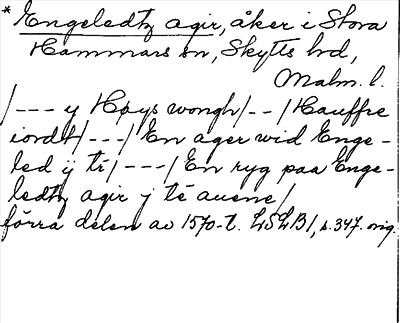 * Engeledtz agir, åker i Stora
Hammars sn, Skytts hd,
Malm. l.
/--- y Høys wongh/--/Hauffre
iordt/---/En ager wid Enge-
led y ti/---/En ryg paa Enge-
ledtz agir y té auene/
förra delen av 1570-t. LSLB1, s. 347. orig.